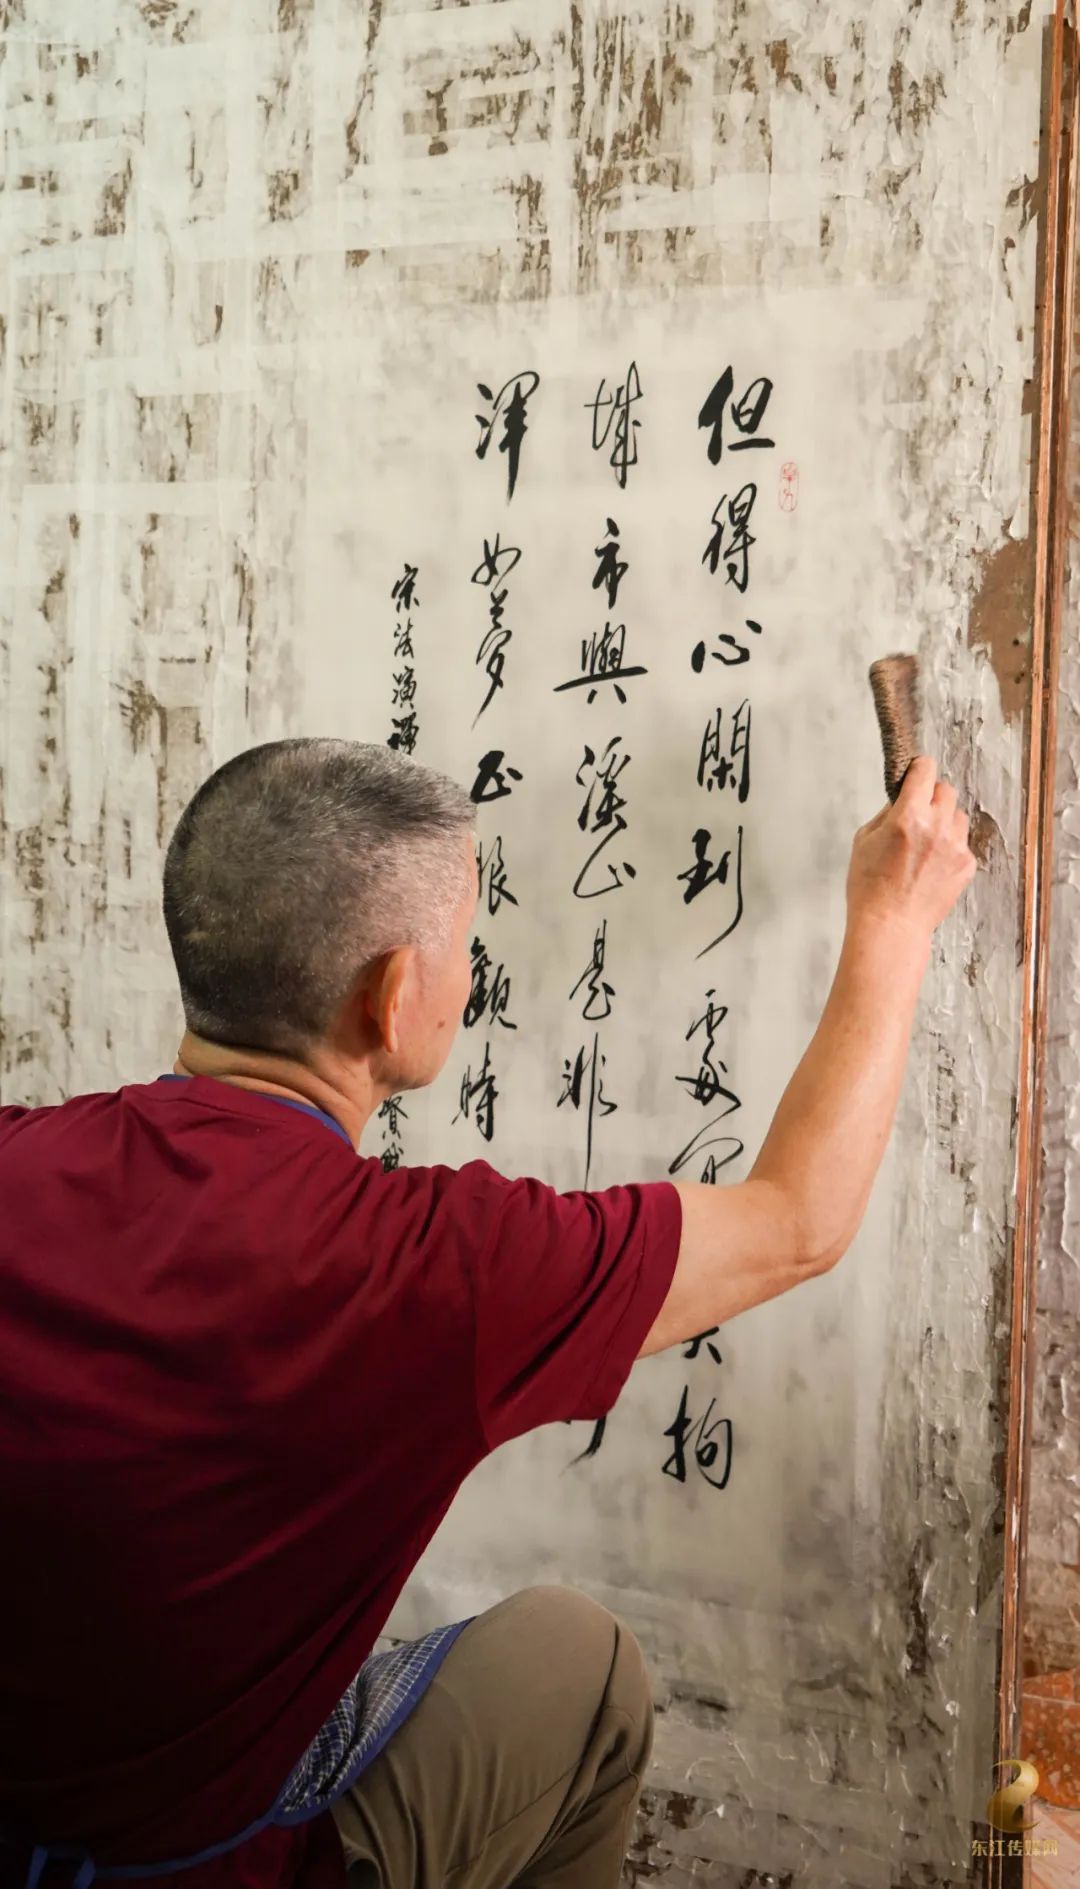 但得心閑到處宜
拘
城市與溪山是非
渾如夢正眼觀時
宋法演禪
賢
东江传媒网